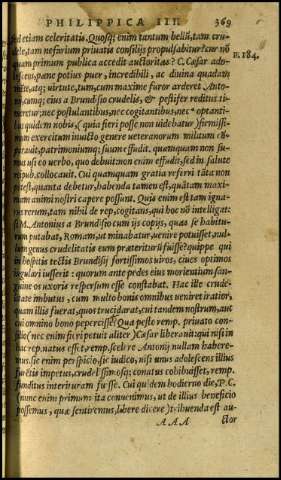 PHILIPPICA III 369
sed etiam celeritatis. Quousq; enim tantum bellū, tam cru
dele, tam nefarium priuatis consilijs propulsabitur? cur nō
quam primum publica accedit auctoritas? C. Cæsar ado
P. 184.
lescens, pæne potius puer, incredibili, ac diuina quadam
mente, atq; virtute, tum, cum maxime furor arderet Anto-
nij, cumq; eius a Brundisio crudelis, & pestifer reditus ti-
meretur, nec postulantibus, nec cogitantibus, nec optanti-
bus quidem nobis, (quia fieri posse non uidebatur) firmissi-
mum exercitum inuicto genere ueteranorum militum cō
parauit, patrimoniumq; suum effudit. quamquam non sum
usus eo uerbo, quo debui: non enim effudit, sed in salute
reipub. collocauit. Cui quamquam gratia referri tāta non
potest, quanta debetur, habenda tamen est, quātam maxi
mam animi nostri capere possunt. Quis enim est tam igna-
rus rerum, tam nihil de rep. cogitans, qui hoc nō intelligat:
si M. Antonius a Brundisio cum ijs copijs, quas se habitu-
rum putabat, Romam, ut minabatur, uenire potuisset, nul-
lum genus crudelitatis eum præteriturū fuisse? quippe qui
in hospitis tectis Brundisij fortissimos uiros, ciues optimos
iugulari iusserit: quorum ante pedes eius morientium san-
guine os uxoris respersum esse constabat. Hac ille crude-
litate imbutus, cum multo bonis omnibus ueniret iratior,
quam illis fuerat, quos trucidarat, cui tandem nostrum, aut
cui omnino bono pepercisset? Qua peste remp. priuato con-
silio (nec enim fieri potuit aliter) Cæsar liberauit: qui nisi in
hac rep. natus esset, remp. scelere Antonij nullam habere-
mus. sic enim perspicio, sic iudico, nisi unus adolescens illius
furētis impetus, crudelissimosq; conatus cohibuisset, remp.
funditus interituram fuisse. Cui quidem hodierno die, P. C.
(nunc enim primum ita conuenimus, ut de illius beneficio
possemus, quæ sentiremus, libere dicere) tribuenda est au-
AAA ctor